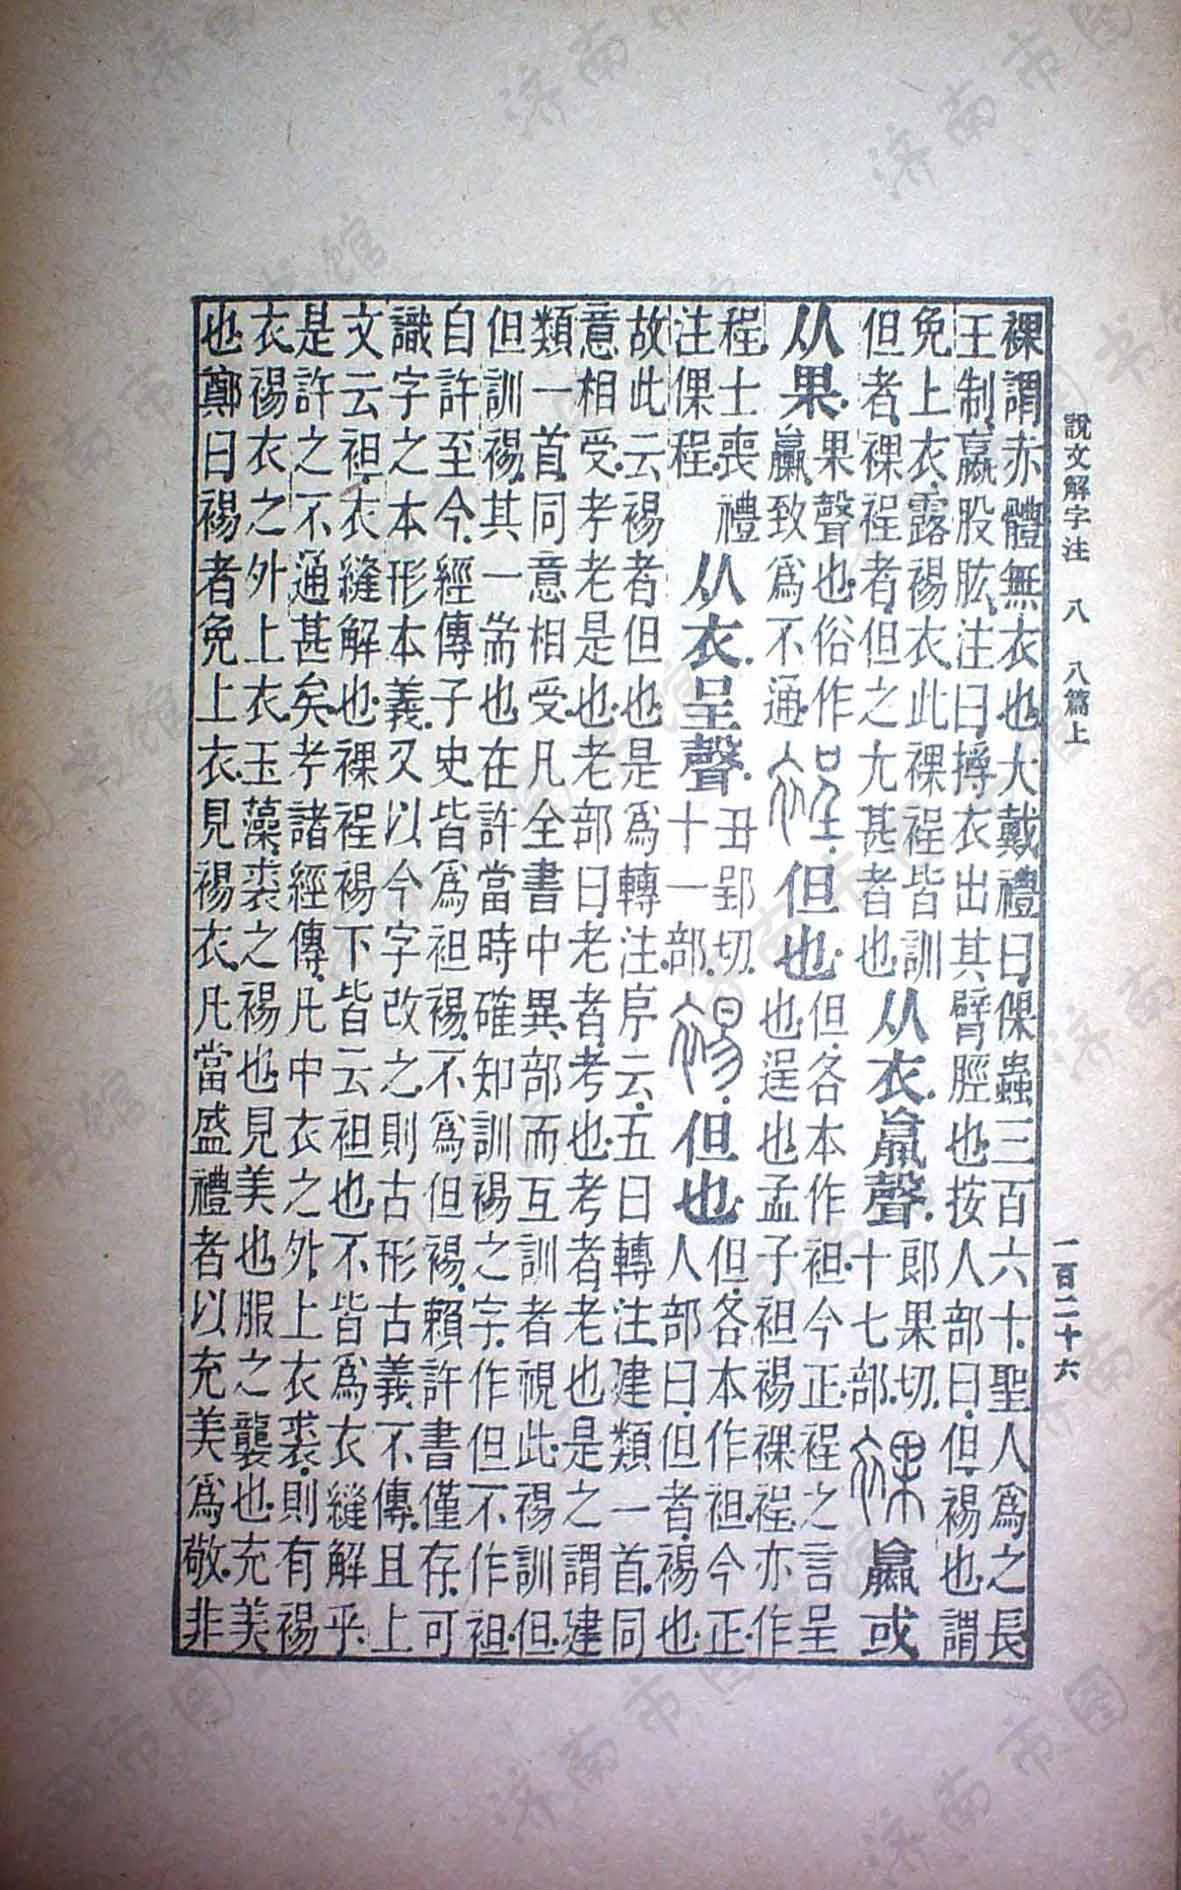 說文解字注 八 八篇上 一百二十六
裸謂赤體無衣也大戴禮曰倮蟲三百六十聖人爲之長
王制臝股肱注曰衣出其臂脛也按人部曰但裼也謂
免上衣露裼衣此裸裎皆訓
但者裸裎者但之尤甚者也
从衣𦝠聲
郎果切
十七部
裸 臝或
从果
果聲也俗作
臝致爲不通
裎 但也
但各本作袒今正裎之言呈
也逞也孟子袒裼裸裎亦作
程士喪禮
注倮程
从衣呈聲
丑郢切
十一部
裼 但也
但各本作袒今正
人部曰但者裼也
故此云裼者但也是爲轉注序云五曰轉注建類一首同
意相受考老是也老部曰老者考也考者老也是之謂建
類一首同意相受凡全書中異部而互訓者視此裼訓但
但訓裼其一耑也在許當時確知訓裼之字作但不作袒
自許至今經傳子史皆爲袒裼不爲但裼賴許書僅存可
識字之本形本義又以今字改之則古形古義不傳且上
文云袒衣縫解也裸裎裼下皆云袒也不皆爲衣縫解乎
是許之不通甚矣考諸經傳凡中衣之外上衣裘則有裼
衣裼衣之外上衣玉藻裘之裼也見美也服之襲也充美
也鄭曰裼者免上衣見裼衣凡當盛禮者以充美爲敬非
济南市图书馆